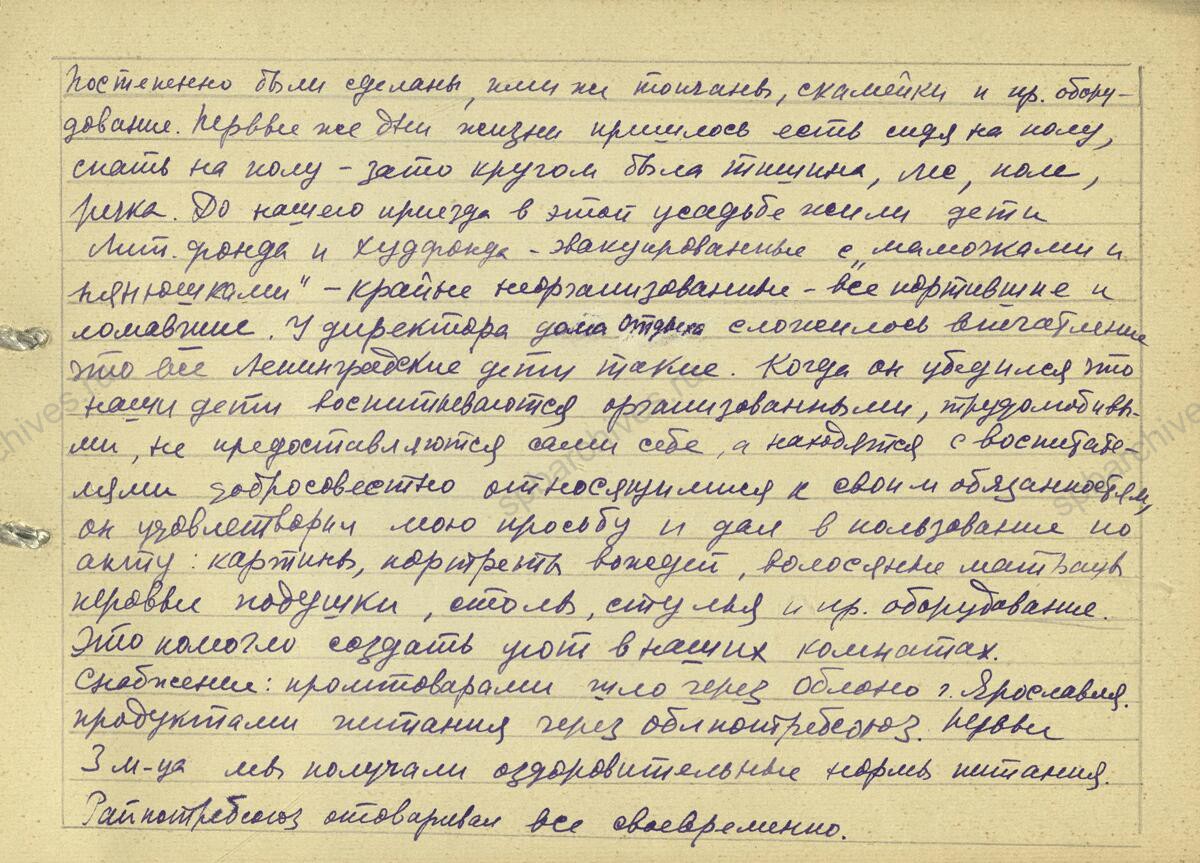 Постепенно были сделаны, ими же топчаны, скамейки и пр. обору-
дование. Первые же дни жизни пришлось есть сидя на полу,
спать на полу – зато кругом была тишина, лес, поле,
речка. До нашего приезда в этой усадьбе жили дети
Лит. фонда и Худфонда – эвакуированные с „мамочками и
нянюшками" – крайне неорганизованные – все портившие и
ломавшие. У директора дома отдыха сложилось впечатление
что все Ленинградские дети такие. Когда он убедился что
наши дети воспитываются организованными, трудолюбивы-
ми, не предоставляются сами себе, а находятся с воспитате-
лями добросовестно относящимися к своим обязанностям,
он удовлетворил мою просьбу и дал в пользование по
акту: картины, портреты вождей, волосяные матрацы
перовые подушки, столы, стулья и пр. оборудование.
Это помогло создать уют в наших комнатах.
Снабжение: промтоварами шло через Облоно г. Ярославля.
продуктами питания через облпотребсоюз. Первые
3 м-ца мы получали оздоровительные нормы питания.
Райпотребсоюз отоваривал все своевременно.
spbarchives.ru
spbarchives.ru
spbarchives